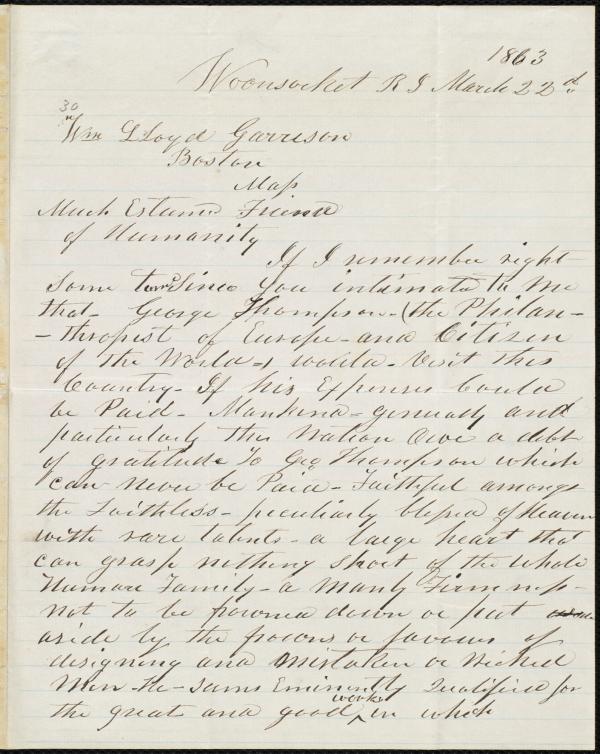 1863
Woonsocket R I March 22d
30
Wm Lloyd Garrison
Boston
Mass
Much Estamed Friend
of Humanity
If I remember right
some time Since you intimated to me
that - George Thompson - (the Philan-
-thropist of Europe - and Citizen
of the World -) would - visit this
Country - If his Expenses Could
be Paid - Mankind - generally and
particularly this Nation Owe a debt
of gratitude to Geo Thompson which
can never be Paid - Faithful amongst
the Faithless - peculiarly blessed of Heaven
with rare talents - a large heart that
can grasp nothing short of the whole
Human Family - a Manly Firmness -
not to be frowned down or put
aside by the frowns or favours of
designing and Mistaken or Wicked
Men - he - seems Eminently Qualified for
the great and good works in which